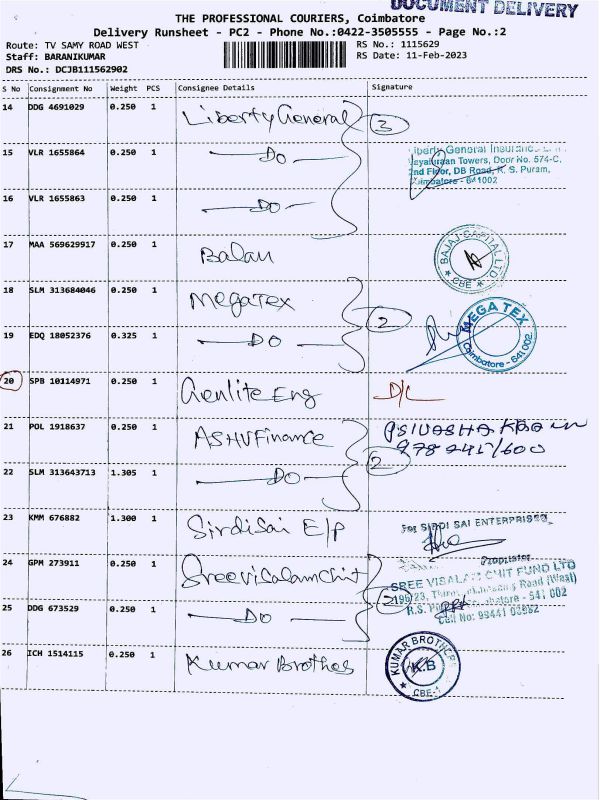 DOCUMENT DELIVERY
THE PROFESSIONAL COURIERS, Coimbatore
Delivery Runsheet - PC2 - Phone No.:0422-3505555 - Page No.:2
Route: TV SAMY ROAD WEST
RS No.: 1115629
Staff: BARANIKUMAR
RS Date: 11-Feb-2023
DRS No.: DCJB111562902
S No Consignment No Weight PCS Consignee Details Signature
14 DDG 4691029 0.250 1 Liberty General 3
15 VLR 1655864 0.250 1 — Do —
Liberty General Insurance
Towers, Door No. 574-C,
2nd Floor, DB Road, R. S. Puram,
Coimbatore - 641002
16 VLR 1655863 0.250 1 — Do —
17 MAA 569629917 0.250 1 Balan
BAJAJ CAPITAL LTD * CBE *
18 SLM 313684046 0.250 1 MegaTex 2
MEGA TEX
Coimbatore - 641 002
19 EDQ 18052376 0.325 1 — Do —
20 SPB 10114971 0.250 1 Genlite Eng D/L
21 POL 1918637 0.250 1 ASHV Finance
22 SLM 313643713 1.305 1 — Do — 2
23 KMM 676882 1.300 1 Sirdi Sai E/P
For SIRDI SAI ENTERPRISES
Proprietor
24 GPM 273911 0.250 1 Sree Visalam Chit
SREE VISALAM CHIT FUND LTD
Road (West)
641 002
Cell No:
25 DDG 673529 0.250 1 — Do —
26 ICH 1514115 0.250 1 Kumar Brothes
KUMAR BROTHERS
K.B
* CBE-1